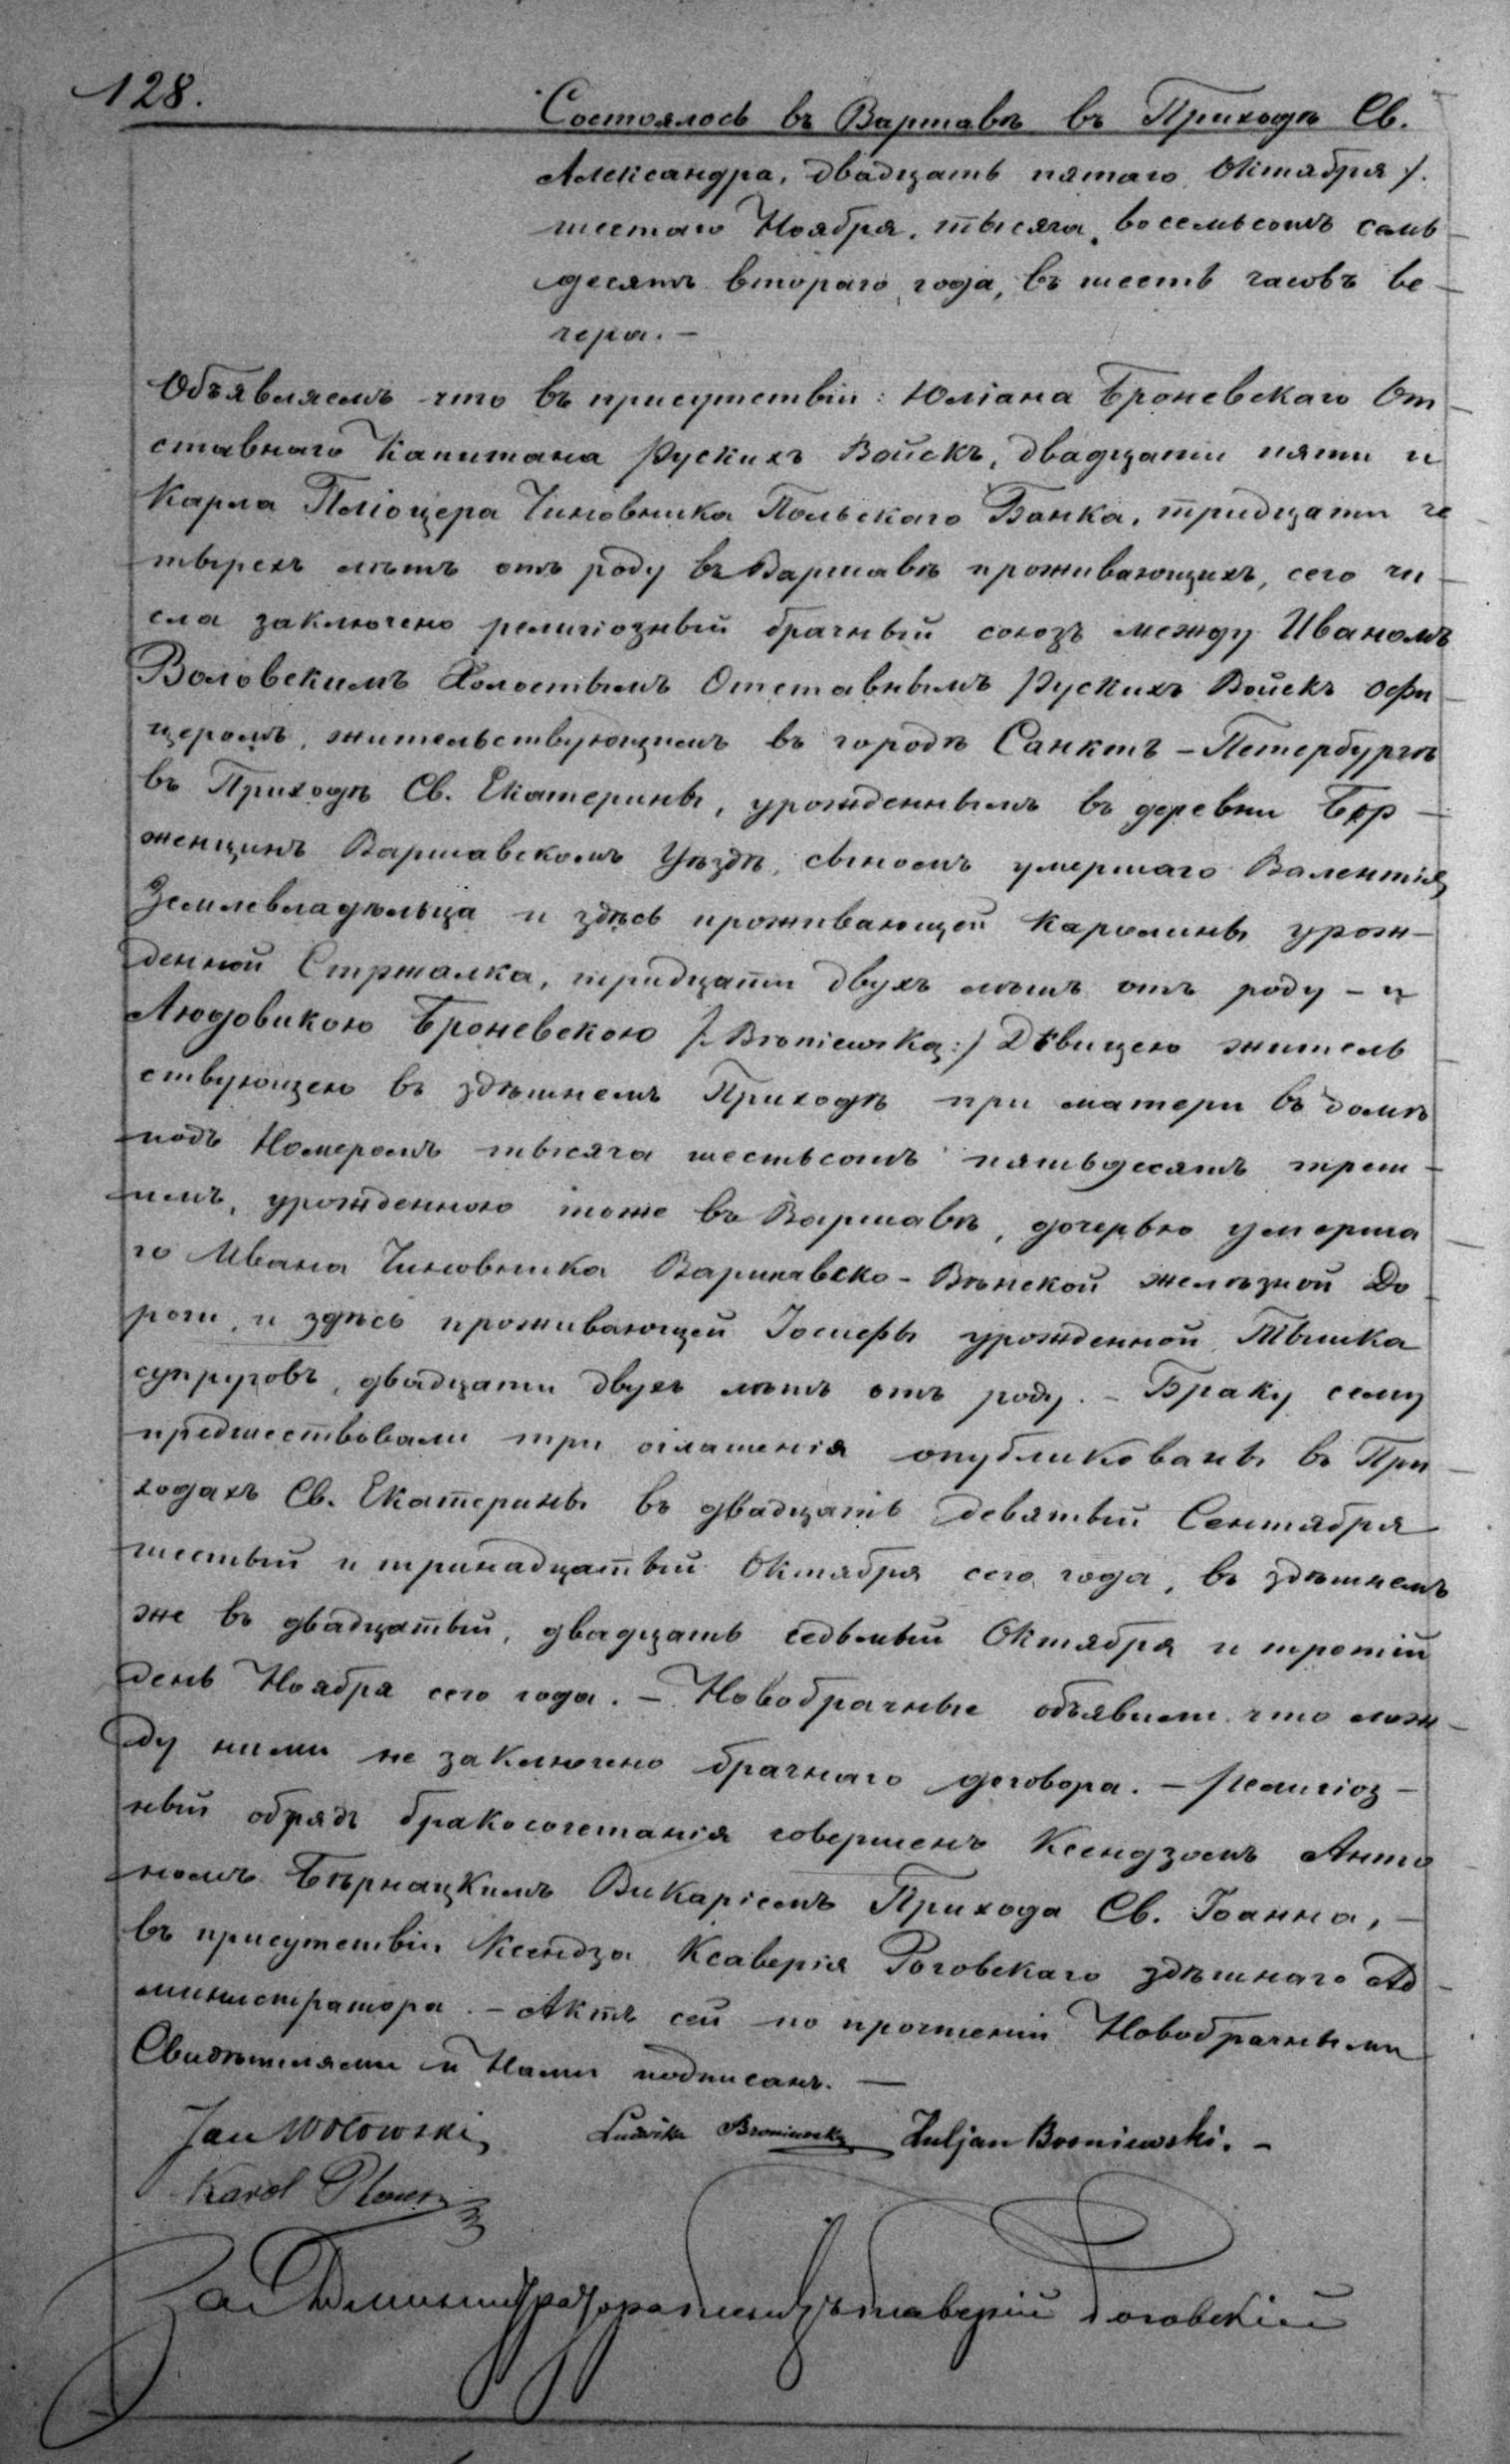 128.
Состоялось въ Варшавѣ въ Приходѣ Св.
Александра, двадцать пятаго Октября /.
шестаго Ноября, тысяча восемьсотъ семь
десятъ втораго года, въ шесть часовъ ве-
чера. —
Объявляемъ что въ присутствіи: Юліана Броневскаго От
ставнаго Капитана Рускихъ Войскъ, двадцати пяти и
Карла Пліоцера Чиновника Польскаго Банка, тридцати че
тырехъ лѣтъ отъ роду въ Варшавѣ проживающихъ, сего чи-
сла заключено религіозный брачный союзъ между Иваномъ
Воловскимъ Холостымъ Отставнымъ Рускихъ Войскъ Офи
церомъ, жительствующимъ въ городѣ Санктъ-Петербургѣ
въ Приходѣ Св. Екатерины, урожденнымъ въ деревни Бр-
женцинъ Варшавскомъ Уѣздѣ, сыномъ умершаго Валентія
Землевладѣльца и здѣсь проживающей Каролины урож-
денной Стржалка, тридцати двухъ лѣтъ отъ роду - и
Людовикою Броневскою /: Broniewską :/ Дѣвицею житель
ствующею въ здѣшнемъ Приходѣ при матери въ домѣ
подъ Номеромъ тысяча шестьсотъ пятьдесятъ трет-
имъ, урожденною тоже въ Варшавѣ, дочерью умерша
го Ивана Чиновника Варшавско-Вѣнской желѣзной До
роги, и здѣсь проживающей Іосифы урожденной Тышка
супруговъ, двадцати двухъ лѣтъ отъ роду. - Браку сему
предшествовали три оглашенія опубликованы въ При
ходахъ Св. Екатерины въ двадцать девятый Сентября
шестый и тринадцатый Октября сего года, въ здѣшнемъ
же въ двадцатый, двадцать седьмый Октября и третій
день Ноября сего года. - Новобрачные объявили что меж-
ду ними не заключено брачнаго договора. - Религіоз-
ный обрядъ бракосочетанія совершенъ Ксендзомъ Анто
номъ Бѣрнацкимъ Викаріемъ Прихода Св. Іоанна, -
въ присутствіи Ксендза Ксаверія Роговскаго здѣшнаго Ад
министратора. - Актъ сей по прочтеніи Новобрачными
Свидѣтелями и Нами подписанъ. —
Jan Wołowski Ludwika Broniewska Juljan Broniewski. -
Karol
Роговскій